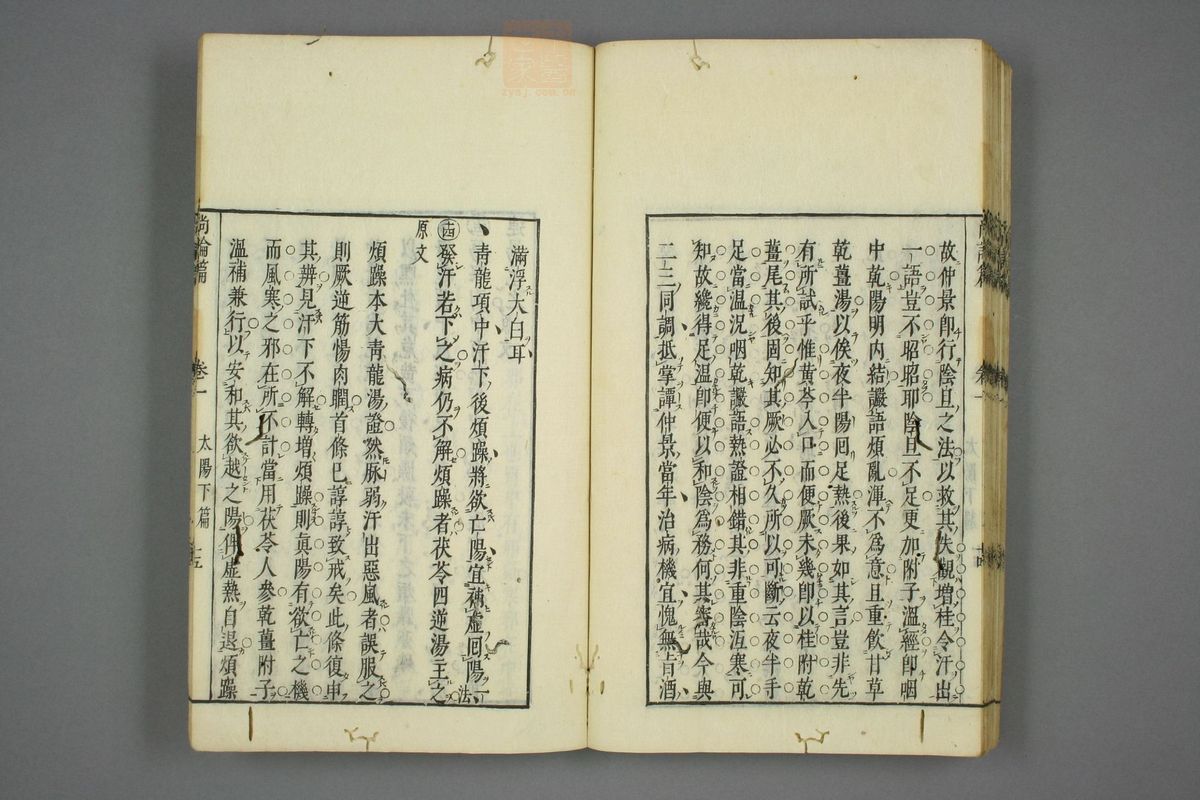 故仲景即行陰旦之法以救其失觀增桂令汗出
一語豈不昭昭耶陰旦不足更加附子溫經即咽
中乾陽明內結讝語煩亂渾不為意且重飲甘草
乾薑湯以俟夜半陽囘足熱後果如其言豈非先
有所試乎惟黃芩入口而便厥未幾即以桂附乾
薑尾其後固知其厥必不久所以可斷云夜半手
足當溫況咽乾讝語熱證相錯其非重陰沍寒可
知故纔得足溫即便以和陰爲務何其審哉今與
二三同調抵掌譚仲景當年治病機宜愧無旨酒
尚論篇 卷一 太陽下篇
滿浮大白耳
青龍項中汗下後煩躁將欲亡陽宜補虛囘陽一法
發汗若下之病仍不解煩躁者茯苓四逆湯主之
原文
煩躁本大青龍湯證然脉弱汗出惡風者誤服之
則厥逆筋惕肉瞤首條已諄諄致戒矣此條復申
其辨見汗下不解轉增煩躁則眞陽有欲亡之機
而風寒之邪在所不計當用茯苓人參乾薑附子
溫補兼行以安和其欲越之陽俾虛熱自退煩躁
尚論篇 卷一 太陽下篇